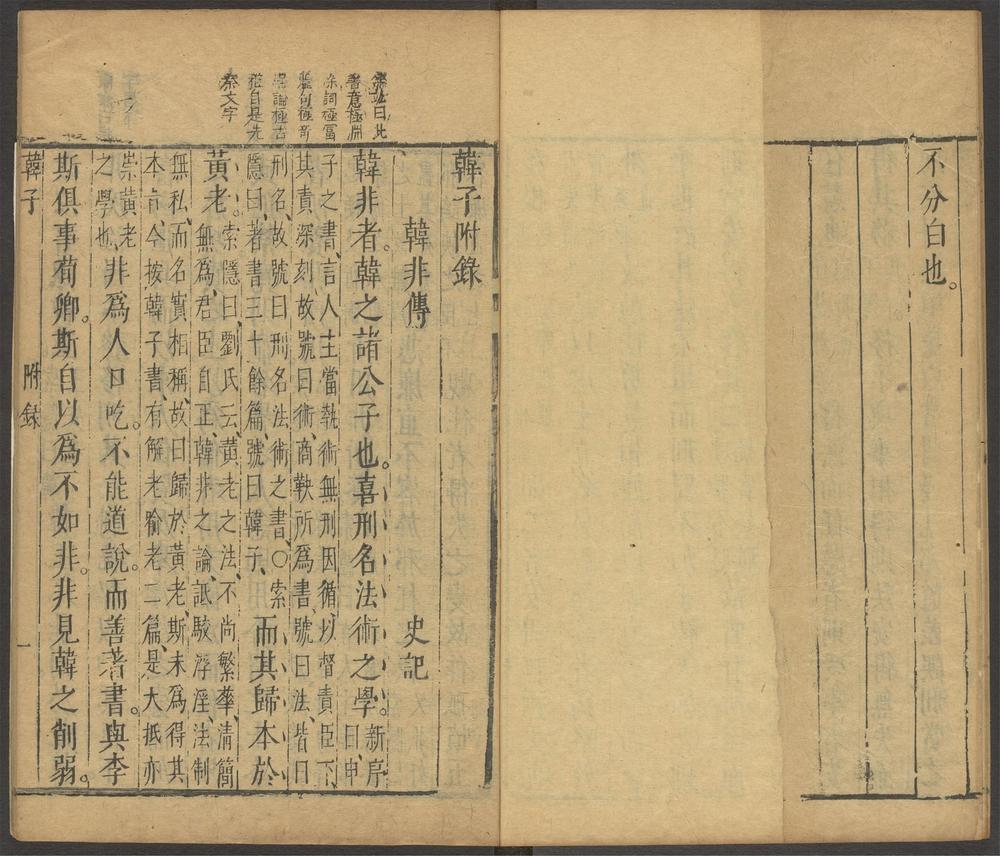 不分白也。
韓子附錄
韓非傳 史記
韓非者。韓之諸公子也。喜刑名法術之學。新序曰、申
子之書、言人主當執術無刑因循、以督責臣下、
其責深刻故號曰術、商鞅所爲書、號曰法、皆曰
刑名、故號曰刑名法術之書、○索
隱曰、著書三十餘篇號曰韓子、而其歸本於
黃老。索隱曰、劉氏云、黃老之法不尚繁華、清簡
無爲、君臣自正、韓非之論、詆駮浮淫、法制
無私、而名實相稱、故曰歸於黃老、斯未爲得其
本旨、今按韓子書、有解老喻老二篇、是大抵亦
崇黃老
之學也、非爲人口吃。不能道說。而善著書。與李
斯俱事荀卿。斯自以爲不如非。非見韓之削弱。
韓子 附錄 一
曰此
書意極淵
詞極富
句極奇
論極古
雅自是先
秦文字